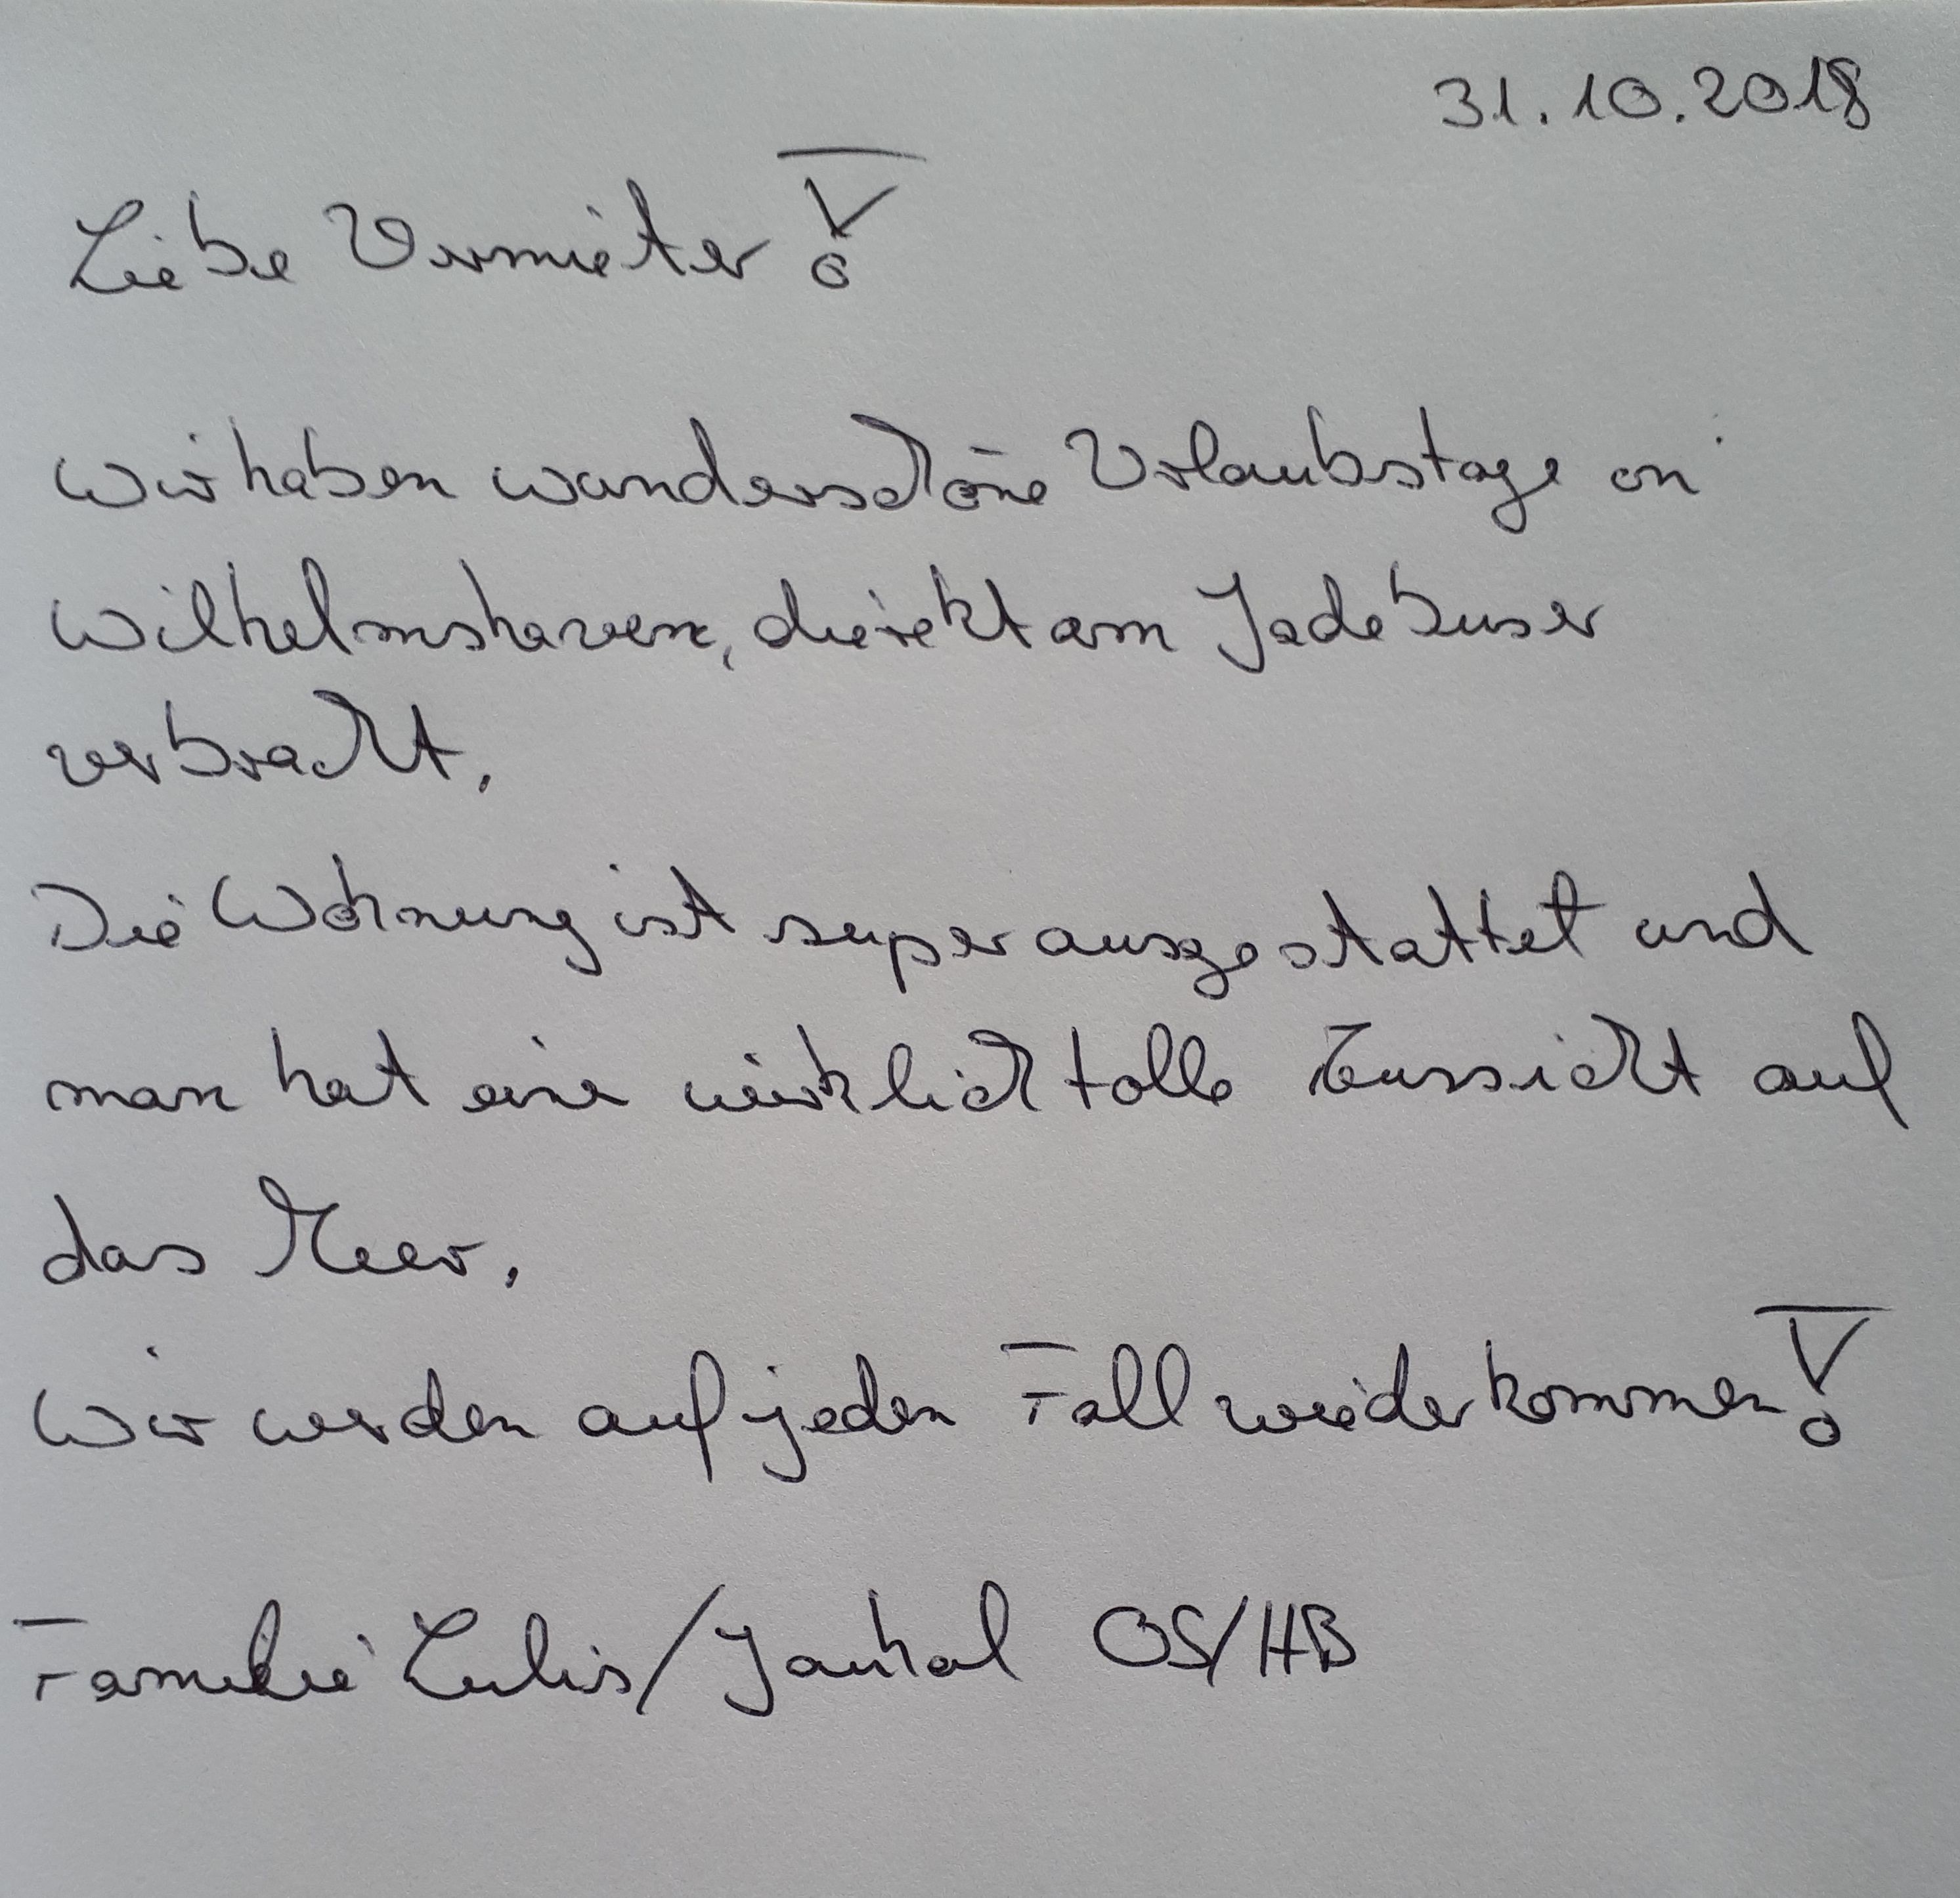 31.10.2018
Liebe Vermieter!
Wir haben wunderschöne Urlaubstage in
Wilhelmshaven, direkt am Jadebuser
verbracht.
Die Wohnung ist super ausgestattet und
man hat eine wirklich tolle Aussicht auf
das Meer.
Wir werden auf jeden Fall wiederkommen!
Familie / OS/HB